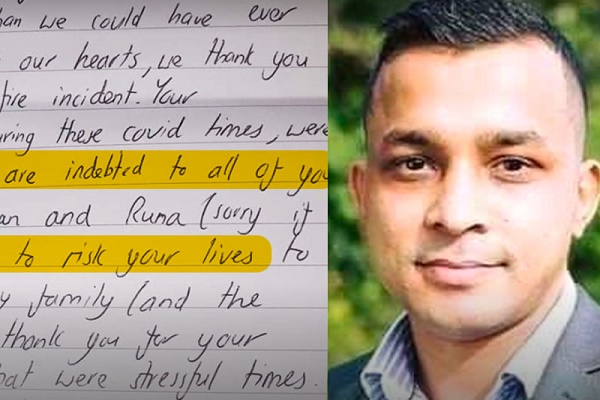 than we could have ever
our hearts, we thank you
fire incident. Your
uring these covid times, were
are indebted to all of you
an and Runa (sorry if
to risk your lives to
y family (and the
thank you for your
hat were stressful times.